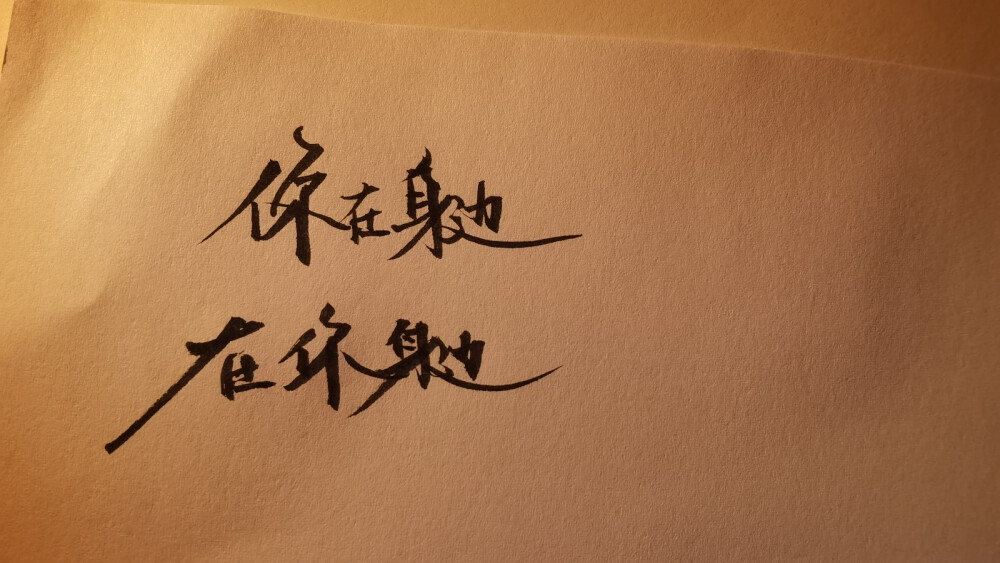 你在身边
在你身边